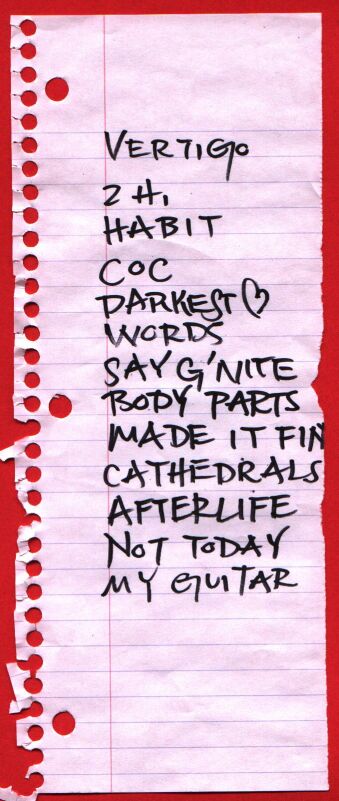 VERTIGO
2 HI
HABIT
COC
DARKEST ♡
WORDS
SAY G'NITE
BODY PARTS
MADE IT FIN
CATHEDRALS
AFTERLIFE
NOT TODAY
MY GUITAR